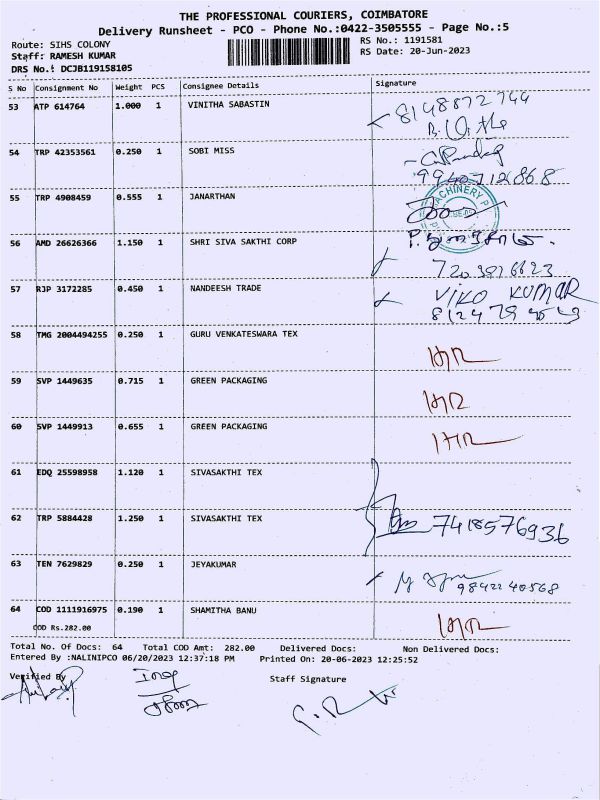 THE PROFESSIONAL COURIERS, COIMBATORE
Delivery Runsheet - PCO - Phone No.:0422-3505555 - Page No.:5
Route: SIHS COLONY RS No.: 1191581
Staff: RAMESH KUMAR RS Date: 20-Jun-2023
DRS No.: DCJB119158105
S No Consignment No Weight PCS Consignee Details Signature
53 ATP 614764 1.000 1 VINITHA SABASTIN 8148872744
54 TRP 42353561 0.250 1 SOBI MISS
55 TRP 4908459 0.555 1 JANARTHAN
56 AMD 26626366 1.150 1 SHRI SIVA SAKTHI CORP
57 RJP 3172285 0.450 1 NANDEESH TRADE VIKO KUMAR
58 TMG 2004494255 0.250 1 GURU VENKATESWARA TEX
59 SVP 1449635 0.715 1 GREEN PACKAGING
60 SVP 1449913 0.655 1 GREEN PACKAGING
61 EDQ 25598958 1.120 1 SIVASAKTHI TEX
62 TRP 5884428 1.250 1 SIVASAKTHI TEX 7418576936
63 TEN 7629829 0.250 1 JEYAKUMAR 9842240568
64 COD 1111916975 0.190 1 SHAMITHA BANU
COD Rs.282.00
Total No. Of Docs: 64 Total COD Amt: 282.00 Delivered Docs: Non Delivered Docs:
Entered By :NALINIPCO 06/20/2023 12:37:18 PM Printed On: 20-06-2023 12:25:52
Verified By Staff Signature